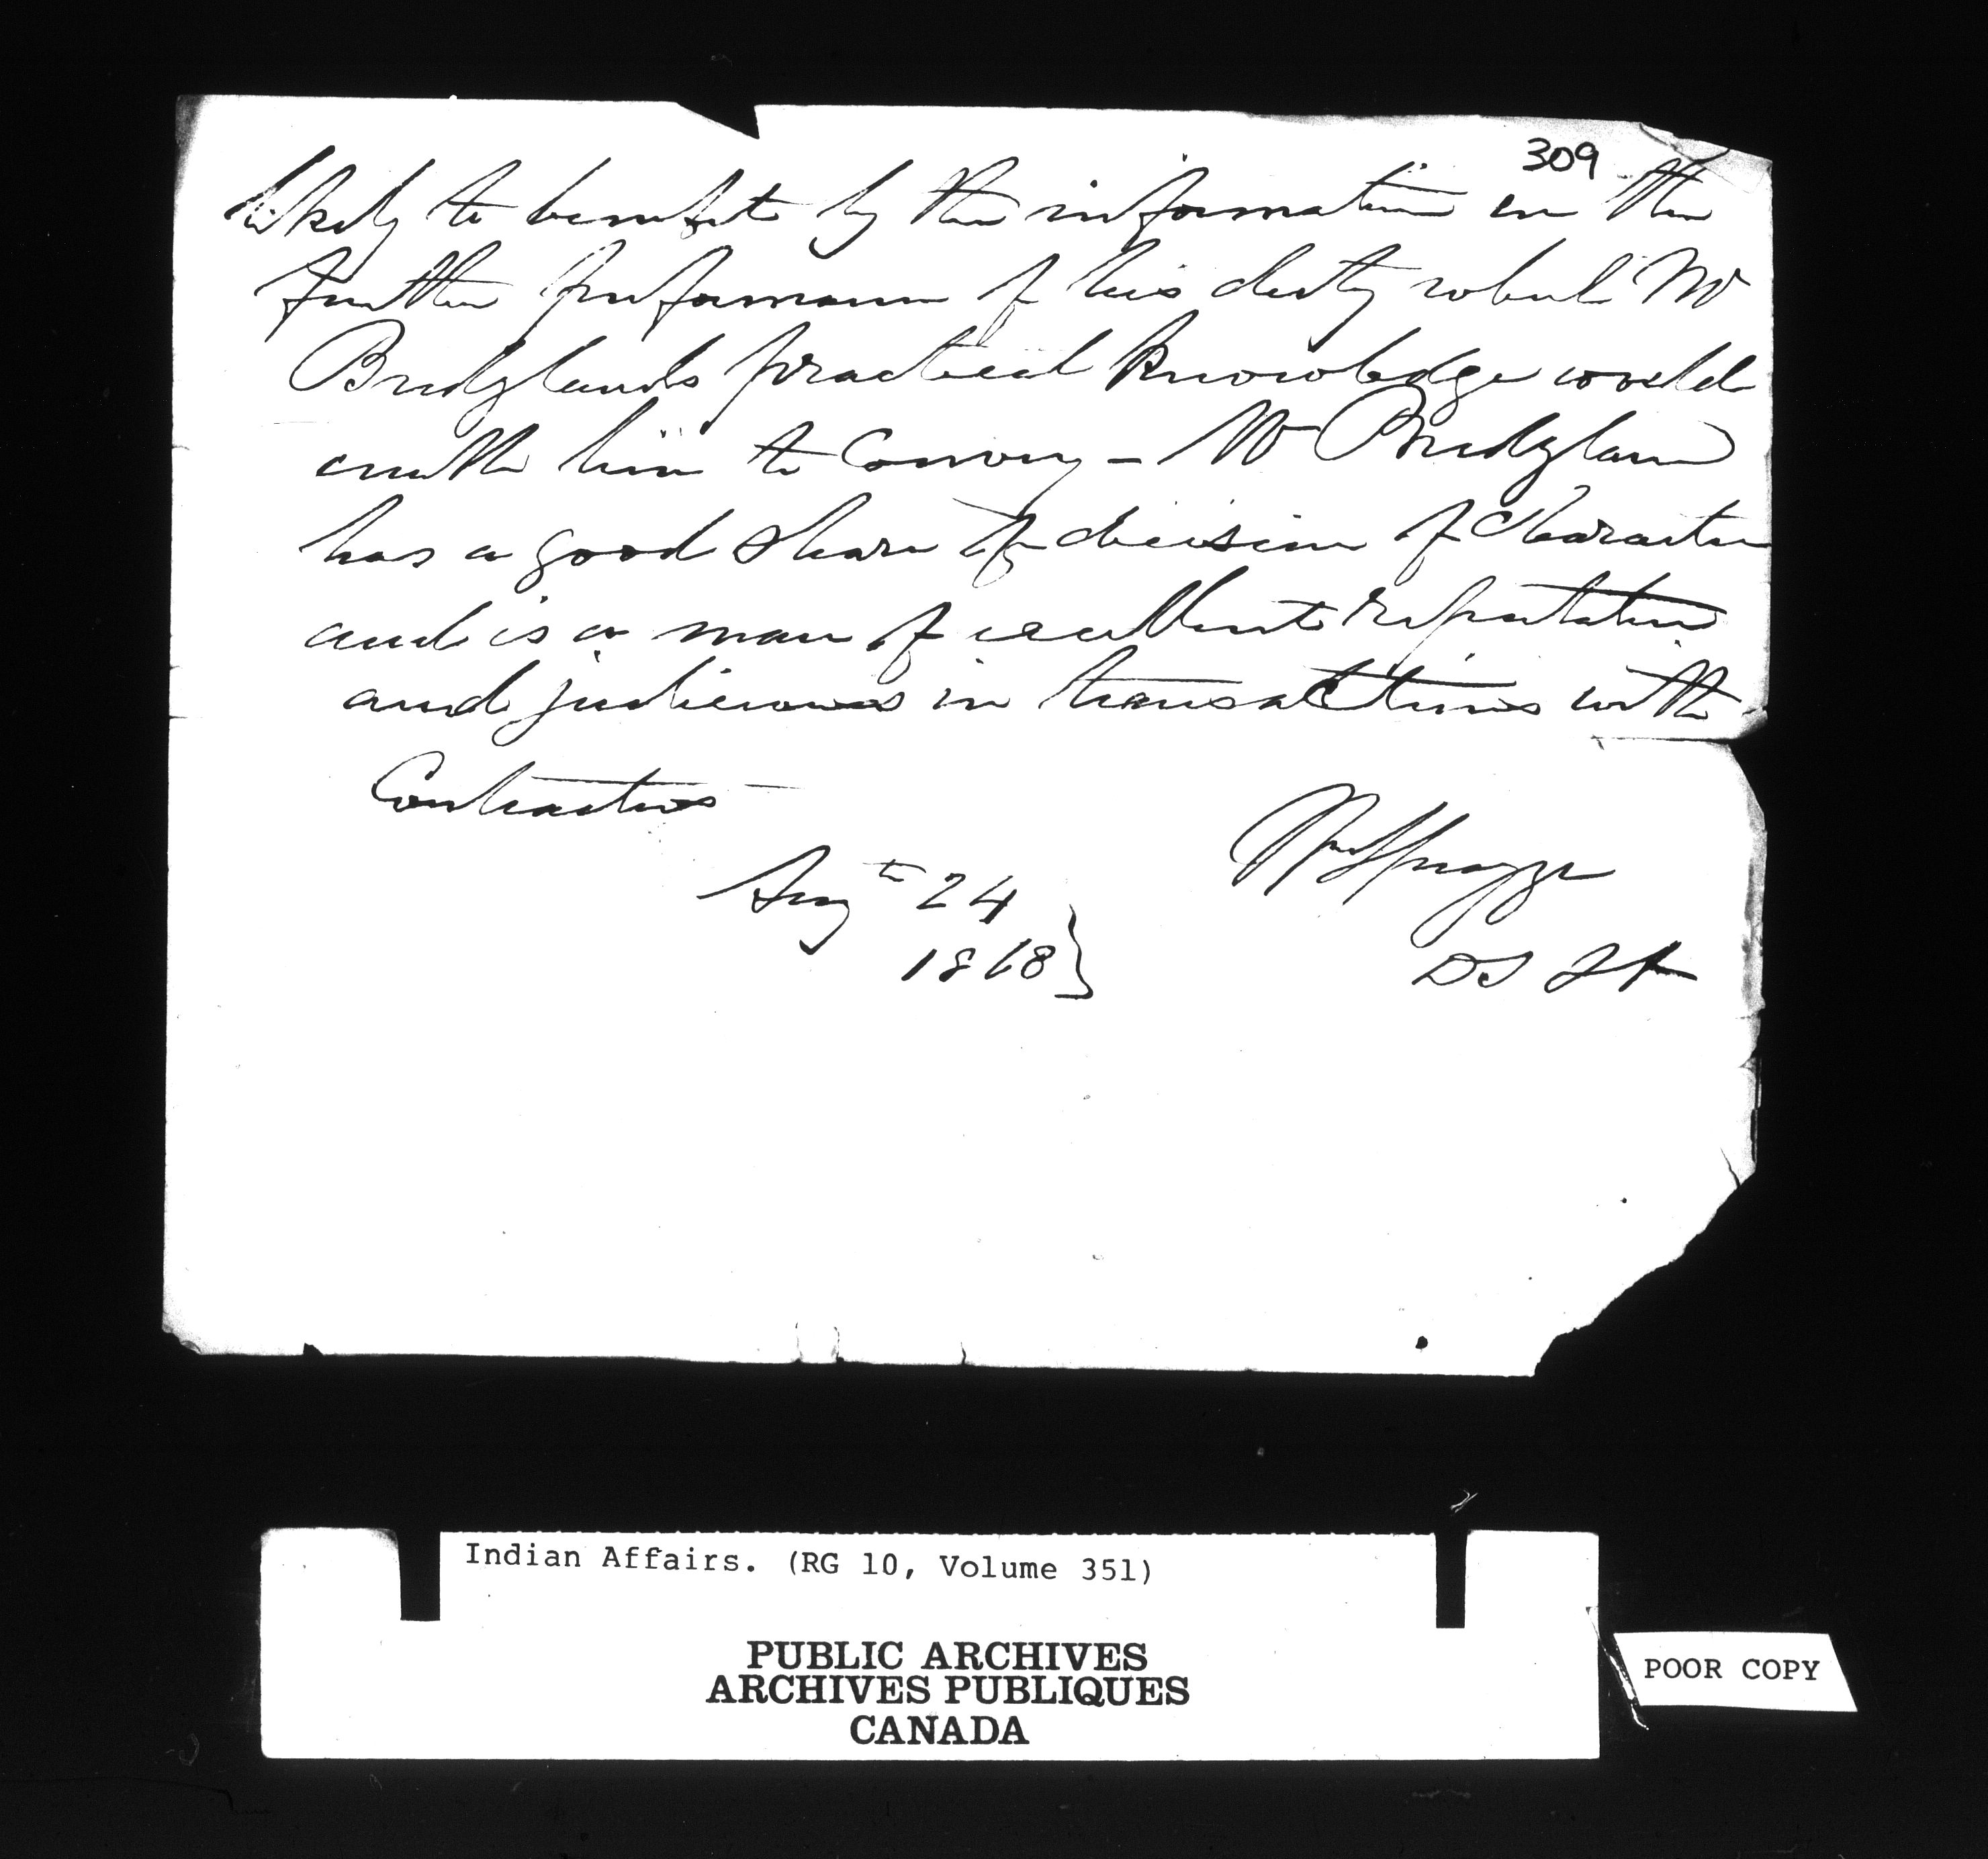 309
likely to benefit by the information in the
further performance of his duty which Mr
Bridglands practical knowledge would
enable him to convey - Mr Bridgland
has a good share of decision of Character
and is a man of excellent reputation
and judicious in transactions with
Contractors
Wm Spragge
Augt 24
1868
DS I A
Indian Affairs. (RG 10, Volume 351)
PUBLIC ARCHIVES
ARCHIVES PUBLIQUES
CANADA
POOR COPY